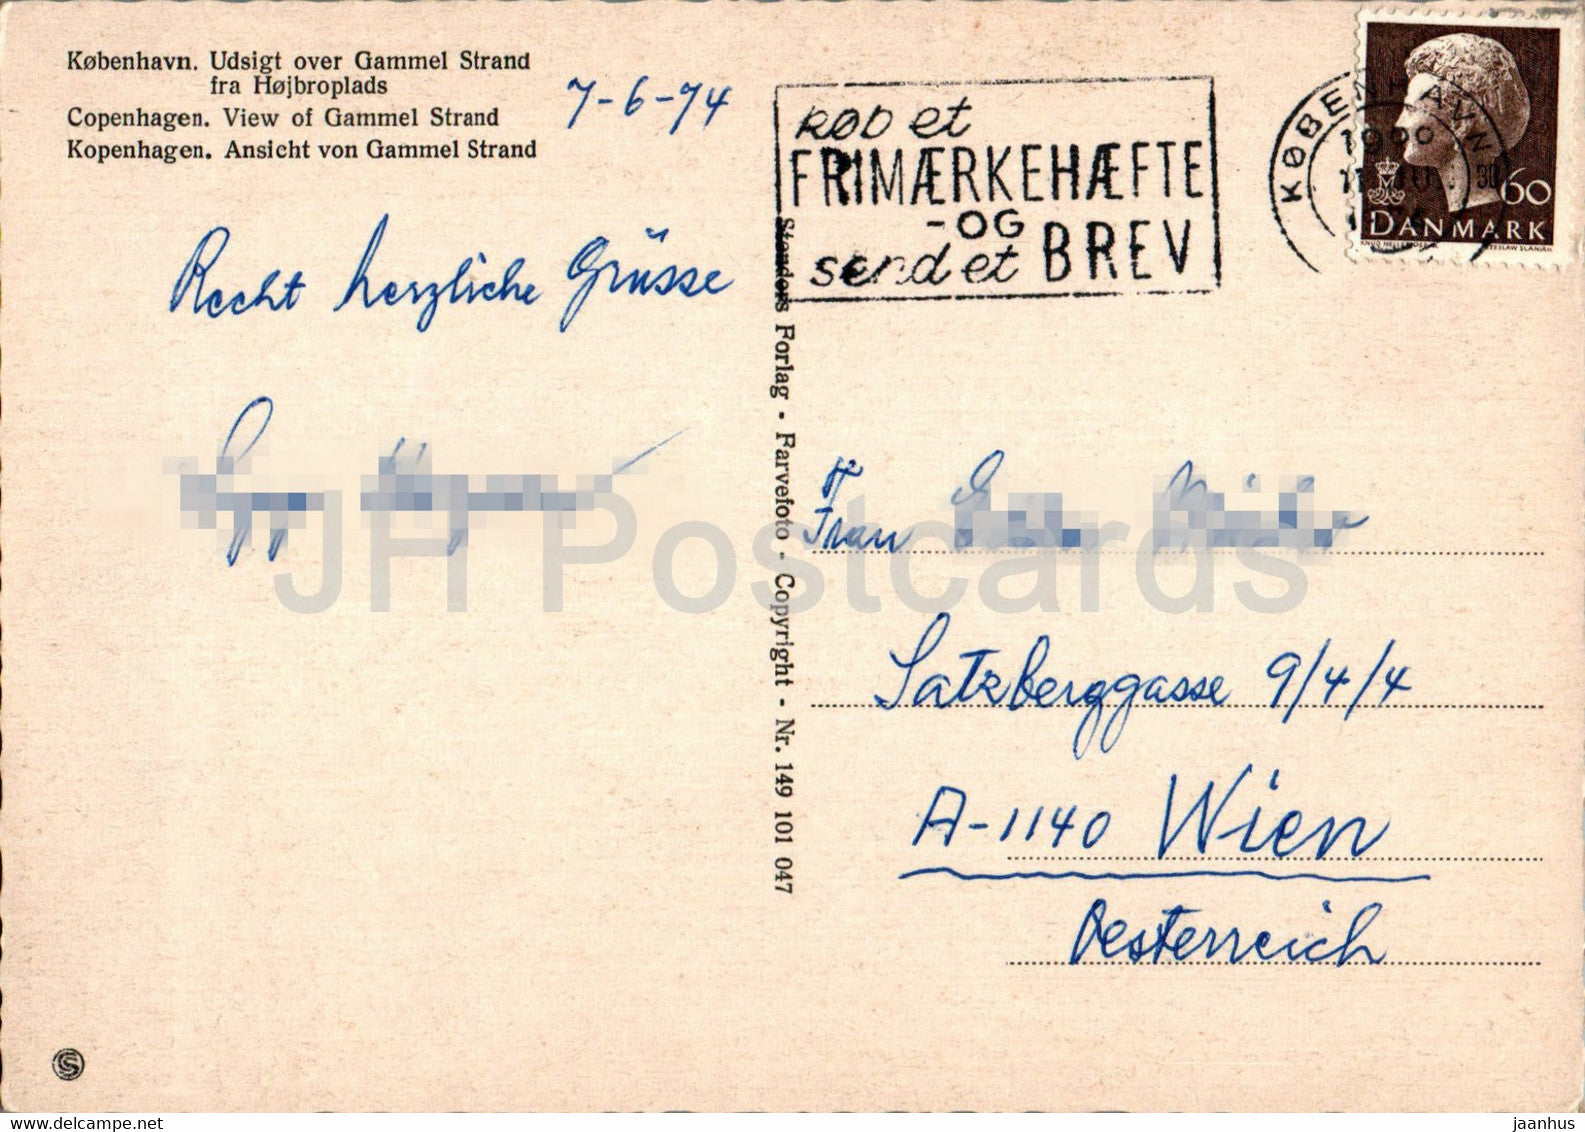 København. Udsigt over Gammel Strand
fra Højbroplads
Copenhagen. View of Gammel Strand
Kopenhagen. Ansicht von Gammel Strand
7-6-74
Recht herzliche Grüsse
køb et
FRIMÆRKEHÆFTE
-OG
send et BREV
KØBENHAVN
60
DANMARK
Stenders Forlag - Farvefoto - Copyright - Nr. 149 101 047
Frau
Satzberggasse 9/4/4
A-1140 Wien
Oesterreich
JH Postcards
www.delcampe.net
jaanhus